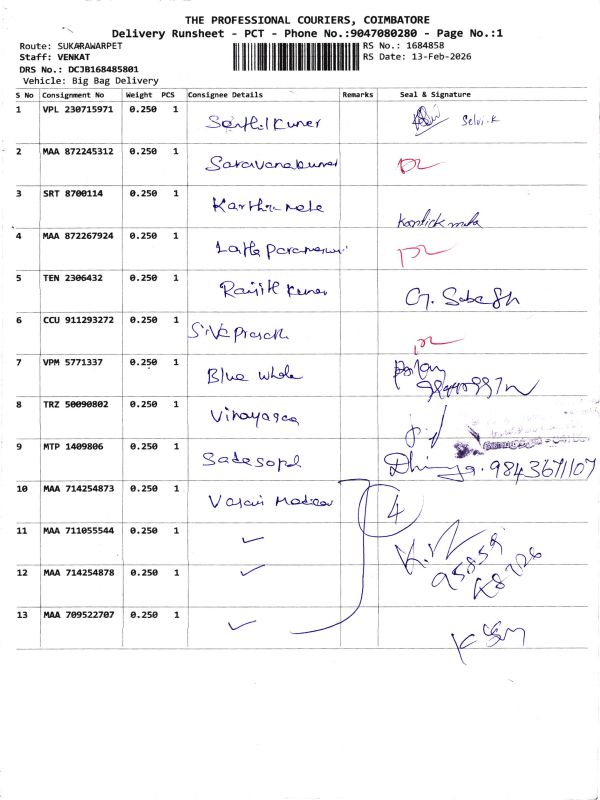 THE PROFESSIONAL COURIERS, COIMBATORE
Delivery Runsheet - PCT - Phone No.:9047080280 - Page No.:1
Route: SUKARAWARPET RS No.: 1684858
Staff: VENKAT RS Date: 13-Feb-2026
DRS No.: DCJB168485801
Vehicle: Big Bag Delivery
S No Consignment No Weight PCS Consignee Details Remarks Seal & Signature
1 VPL 230715971 0.250 1 Senthil Kumer Selvi.K
2 MAA 872245312 0.250 1 Saravanakumar
3 SRT 8700114 0.250 1
4 MAA 872267924 0.250 1
5 TEN 2306432 0.250 1 Ranjith Kumar G. Sabesh
6 CCU 911293272 0.250 1 Siva Prasath
7 VPM 5771337 0.250 1 Blue Whale
8 TRZ 50090802 0.250 1 Vinayagaa
9 MTP 1409806 0.250 1 Dhinya. 9843671107
10 MAA 714254873 0.250 1 Vasavi Medical 4
11 MAA 711055544 0.250 1 ✓
12 MAA 714254878 0.250 1 ✓
13 MAA 709522707 0.250 1 ✓